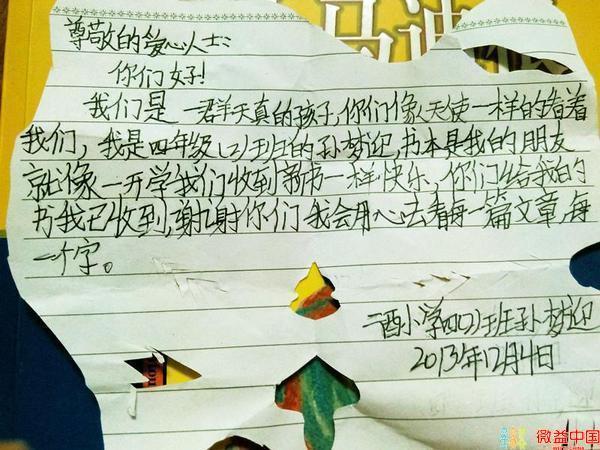 尊敬的爱心人士：
你们好！
我们是一群天真的孩子，你们像天使一样的陪着
我们，我是四年级（2）班的孙梦迎，书本是我的朋友
就像一开学我们收到新书一样快乐，你们给我的
书我已收到，谢谢你们我会用心去看每一篇文章，每
一个字。
酒小学四（2）班孙梦迎
2013年12月4日
微益中国